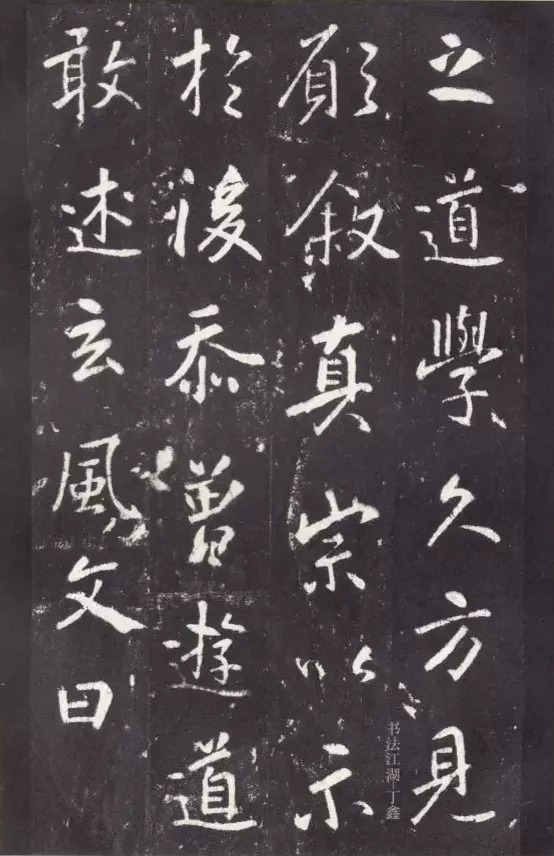 之道學久方見
願敘真宗以示
於後忝曾遊道
敢述玄風文曰
书法江湖-丁鑫